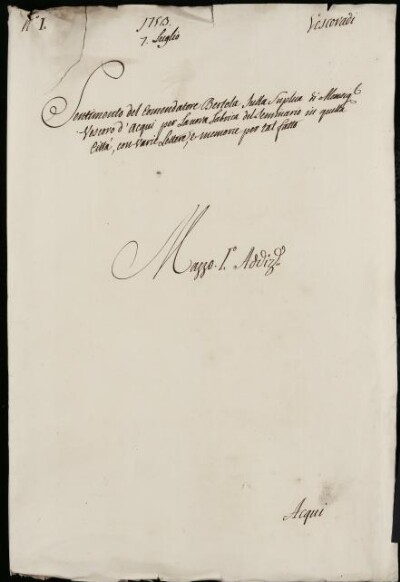 N° I.
1753.
7. Luglio
Vescovadi
Sentimento del Comendatore Bertola Sulla Suplica di Monsig.
Vescovo d'Acqui per la nova fabrica del Seminario in quella
Città, con varie Lettere, e memorie per tal fatto
Mazzo. I.° Addiz.
Acqui